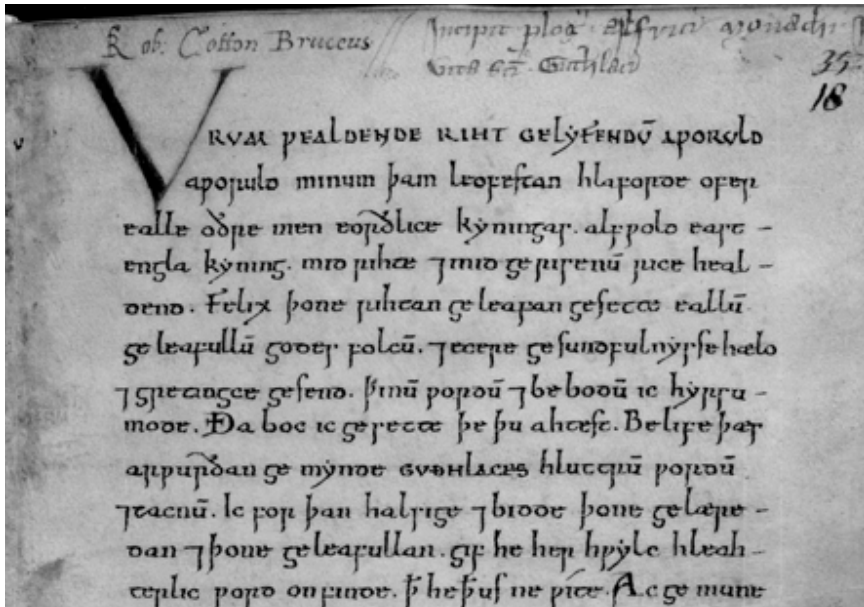 Rob: Cotton Bruceus
Incipit plog Ælfrici monachi
vita sci. Guthlaci
35
18
VRVM ǷEALDENDE RIHT GELẎFENDŪ AǷORVLD
aƿoruld minum þam leofestan hlaforde ofer
ealle oðre men eorðlice kẏningas. alfƿold east-
engla kẏning. mid rihte ⁊ mid gerisenū rice heal-
dend. Felix þone rihtan geleafan gesette eallū
geleafullū godes folcū. ⁊ ecere gesundfulnẏsse hælo
⁊ gretingce gesend. þinū ƿordū ⁊ bebodū ic hẏrsu-
mode. Ða boc ic gesette þe þu ahtest. Be life þæs
arƿurðan gemẏnde GVÐHLACES hluttrū ƿordū
⁊ tacnū. Ic for þan halsige ⁊ bidde þone gelære-
dan ⁊ þone geleafullan. gif he her hƿẏlc hleah-
terlic ƿord onfinde. ꝥ he þus ne ƿite. Ac gemune